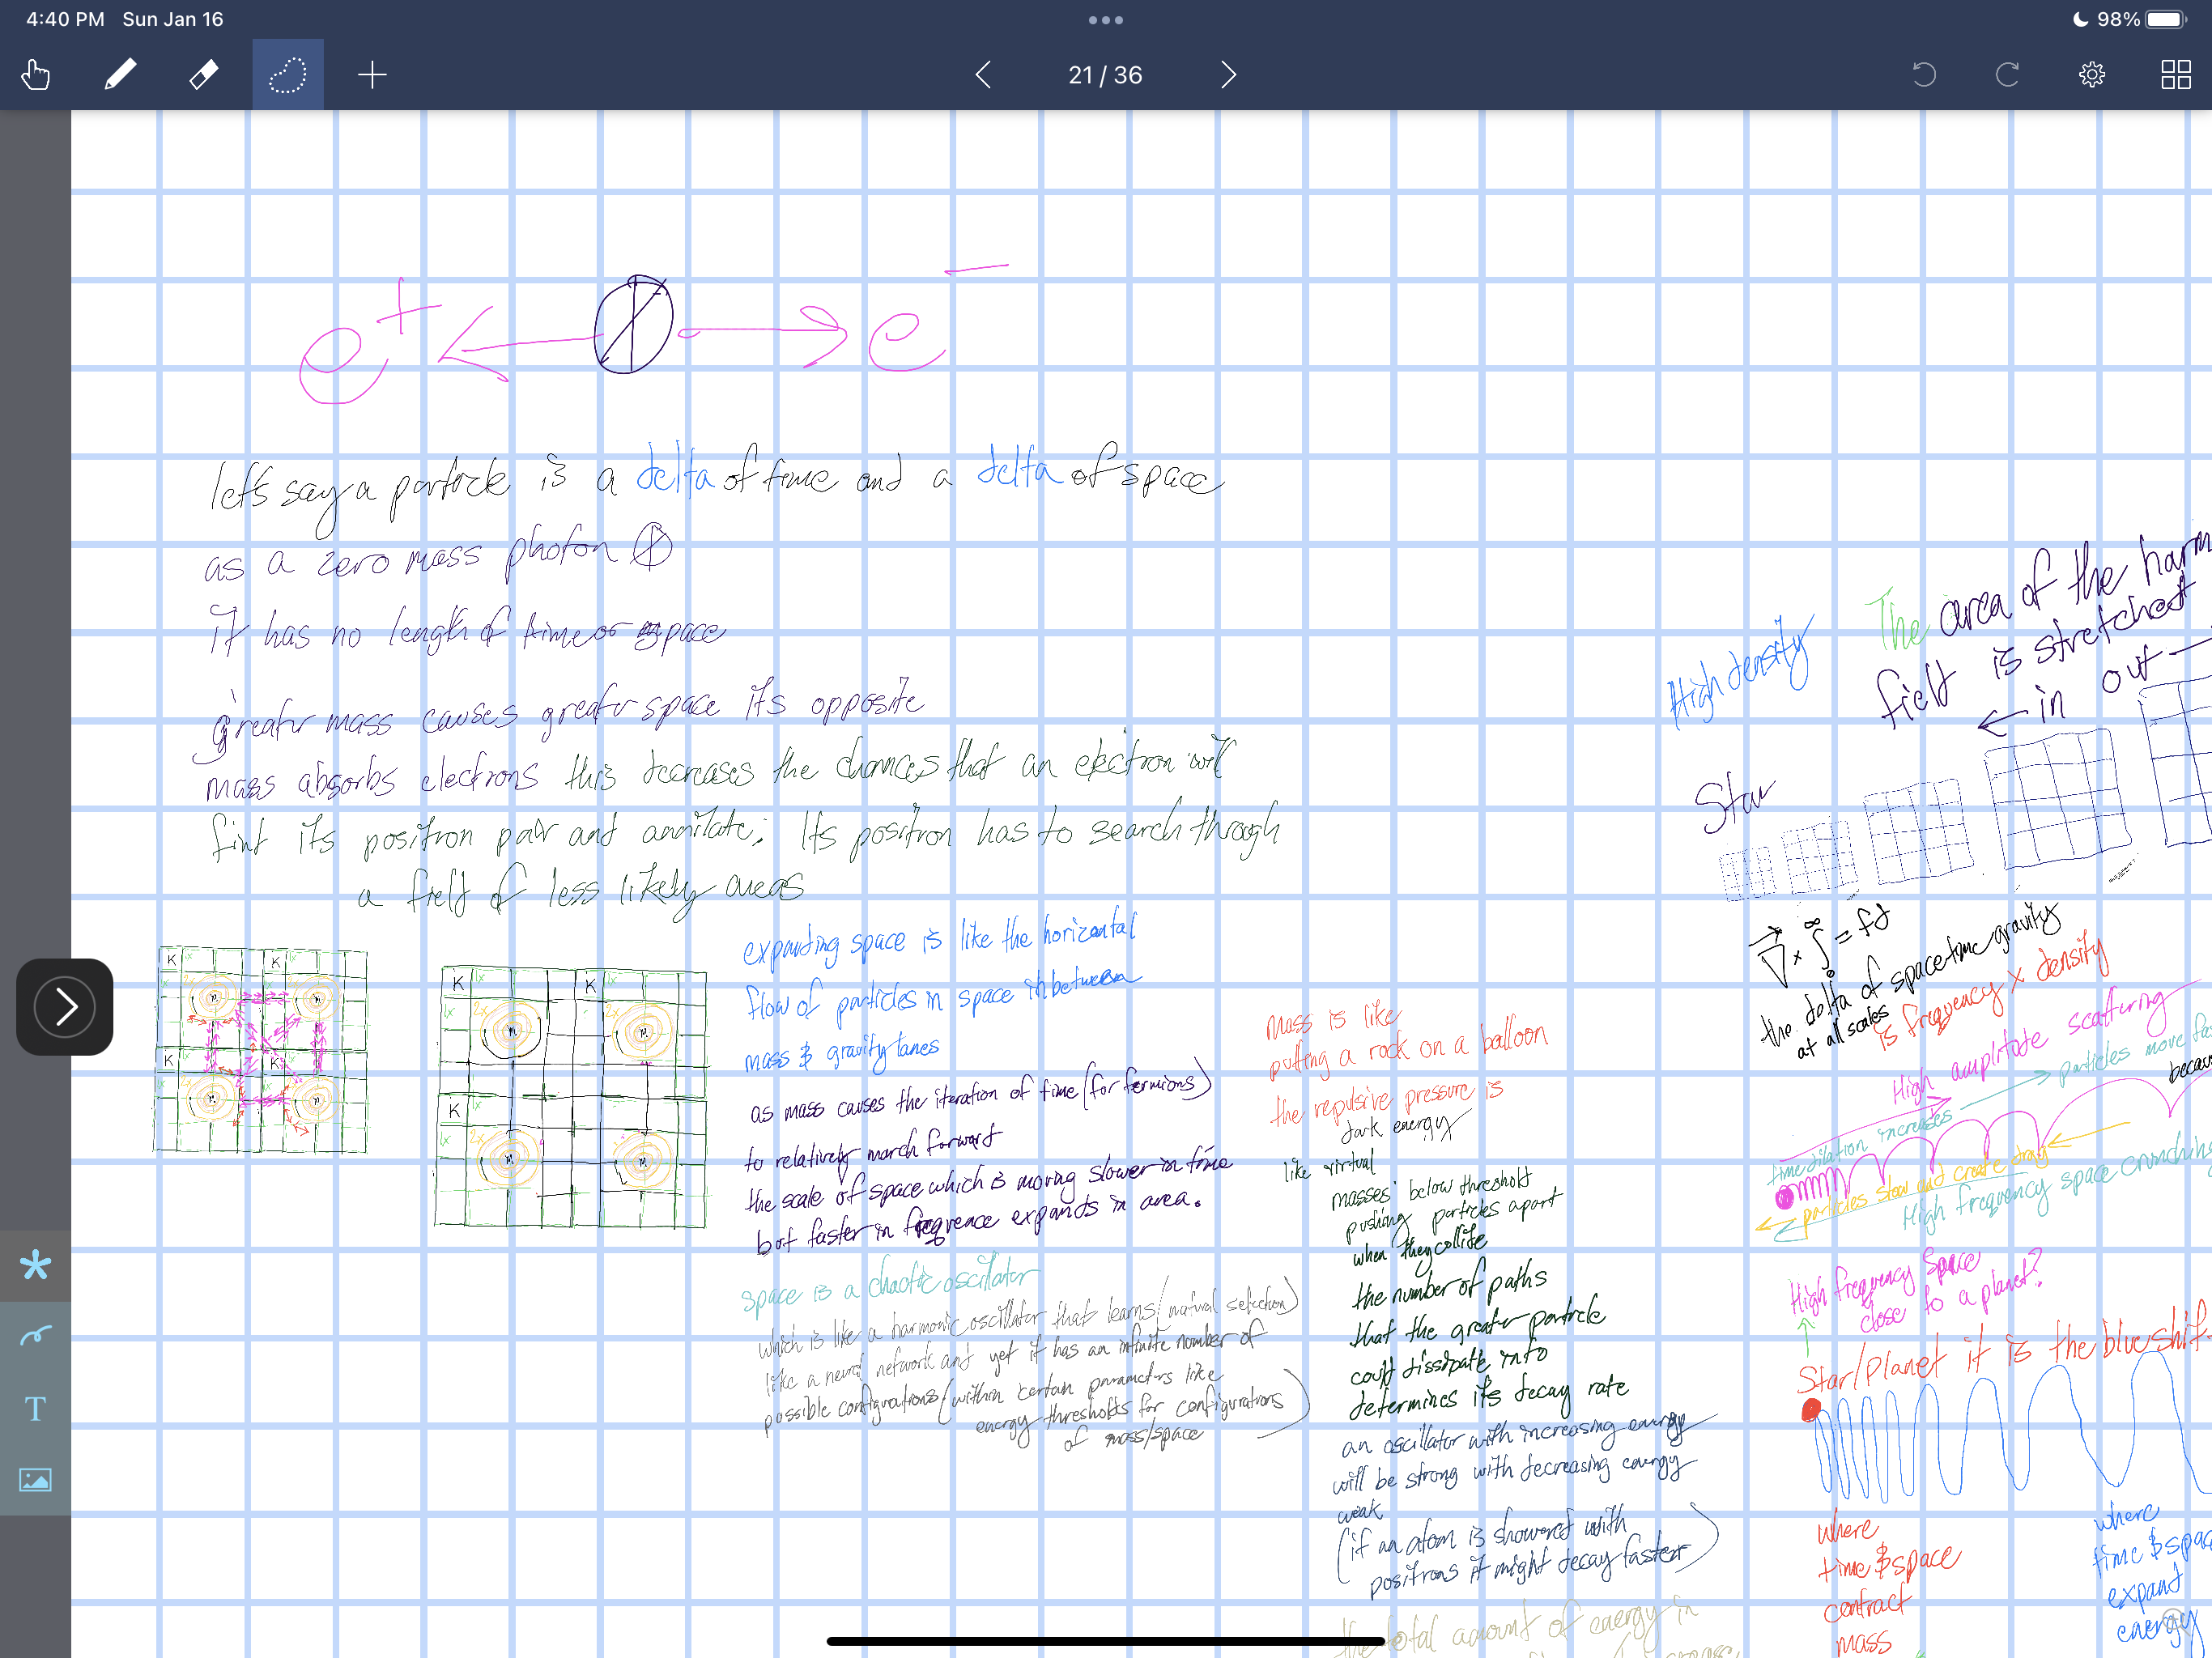 4:40 PM Sun Jan 16
98%
21 / 36
e+ e−
let's say a particle is a delta of time and a delta of space
as a zero mass photon
it has no length of time or space
greater mass causes greater space its opposite
mass absorbs electrons this decreases the chances that an electron will
find its positron pair and annilate; Its positron has to search through
a field of less likely areas
K 1x K
K K
K 1x K 1x
2x 2x
M M
K 1x
2x
M M
expanding space is like the horizontal
flow of particles in space in between
mass & gravity lanes
as mass causes the iteration of time (for fermions)
to relatively march forward
the scale of space which is moving slower in time
but faster in freqvence expands in area.
space is a chaotic oscillator
which is like a harmonic oscillator that learns/natural selection)
like a neural network and yet it has an infinite number of
possible configurations (within certain parameters like
energy thresholds for configurations
of mass/space
mass is like
putting a rock on a balloon
the repulsive pressure is
dark energy
like virtual
masses below threshold
pushing particles apart
when they collide
the number of paths
that the greater particle
could dissipate into
determines its decay rate
an oscillator with increasing energy
will be strong with decreasing energy
weak
(if an atom is showered with
positrons it might decay faster)
the total amount of energy in
High density
The area of the harm
field is stretched
← in out
Star
∇ × ∫₀^∞ = fd
the delta of space-time gravity
at all scales
is frequency x density
High amplitude scattering
particles move fa
becau
time dilation increases
particles slow and create drag
High frequency space crunching
High frequency space
close to a planet?
Star/Planet it is the blueshif
where
time & space
contract
mass
where
time & spac
expand
energy
T